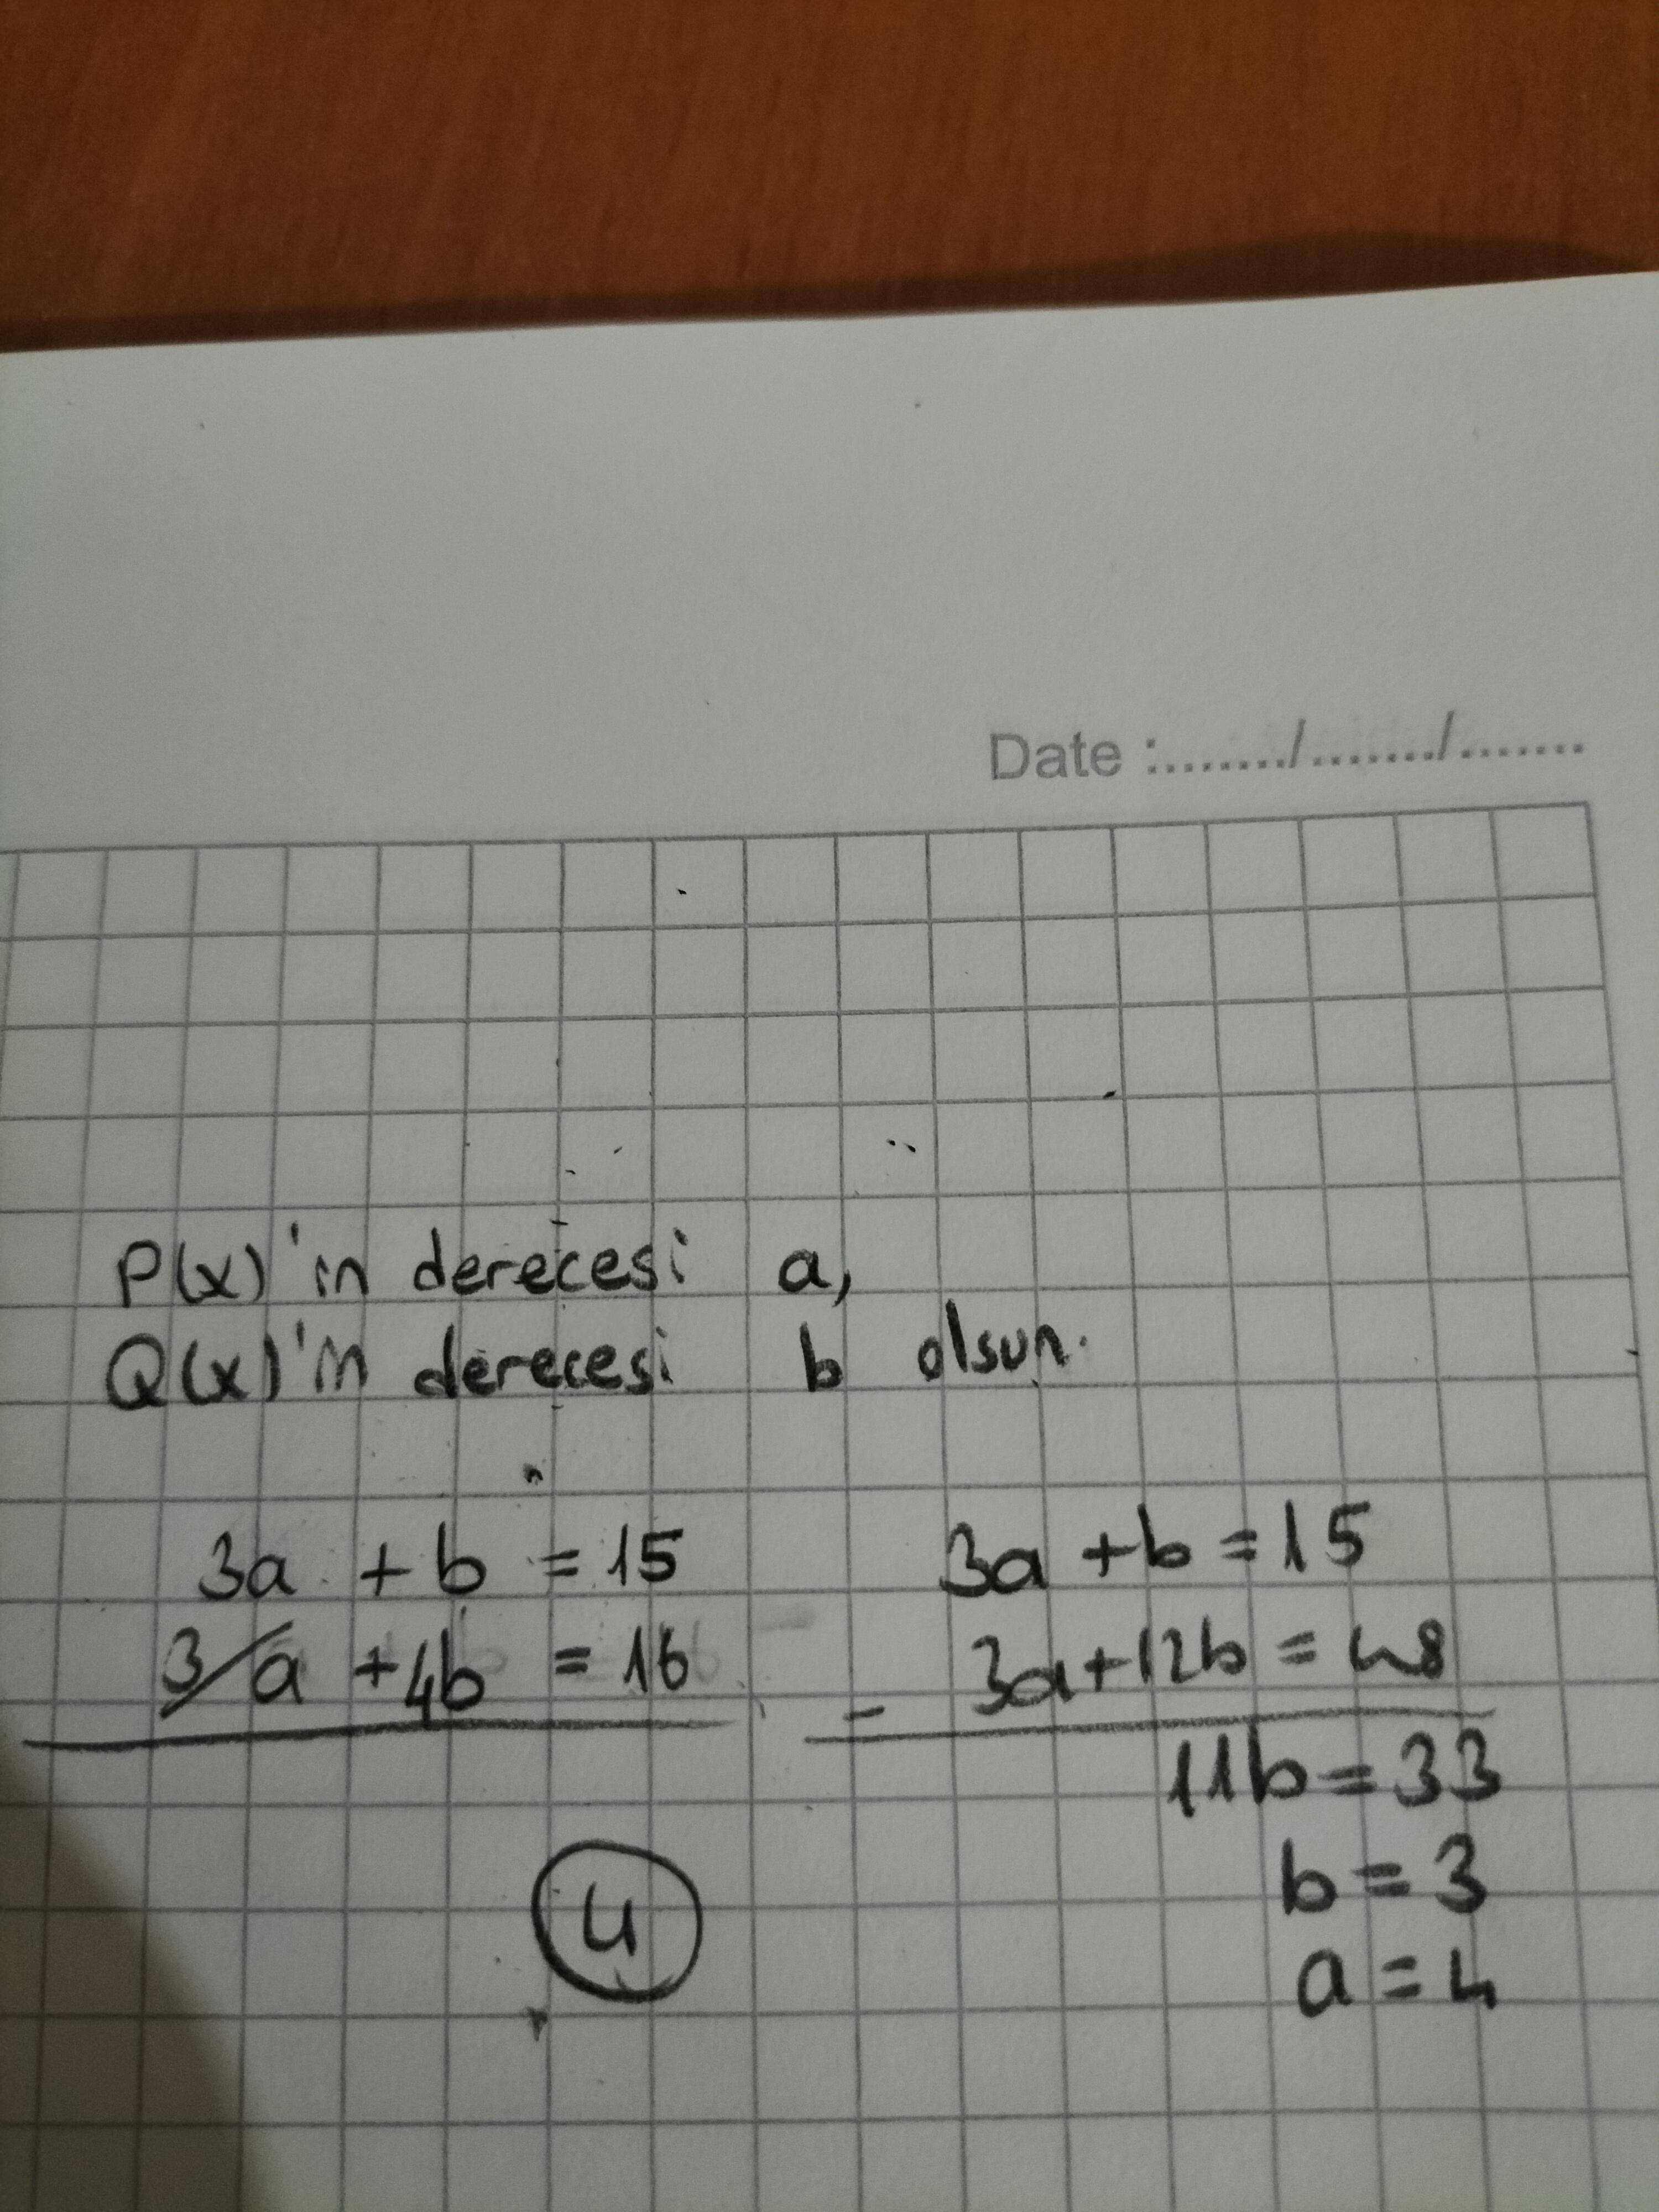 Date :......./......./.......
P(x)'in derecesi a,
Q(x)'in derecesi b olsun.
3a + b = 15
3/a + 4b = 16
3a + b = 15
- 3a + 12b = 48
11b = 33
b = 3
a = 4
4